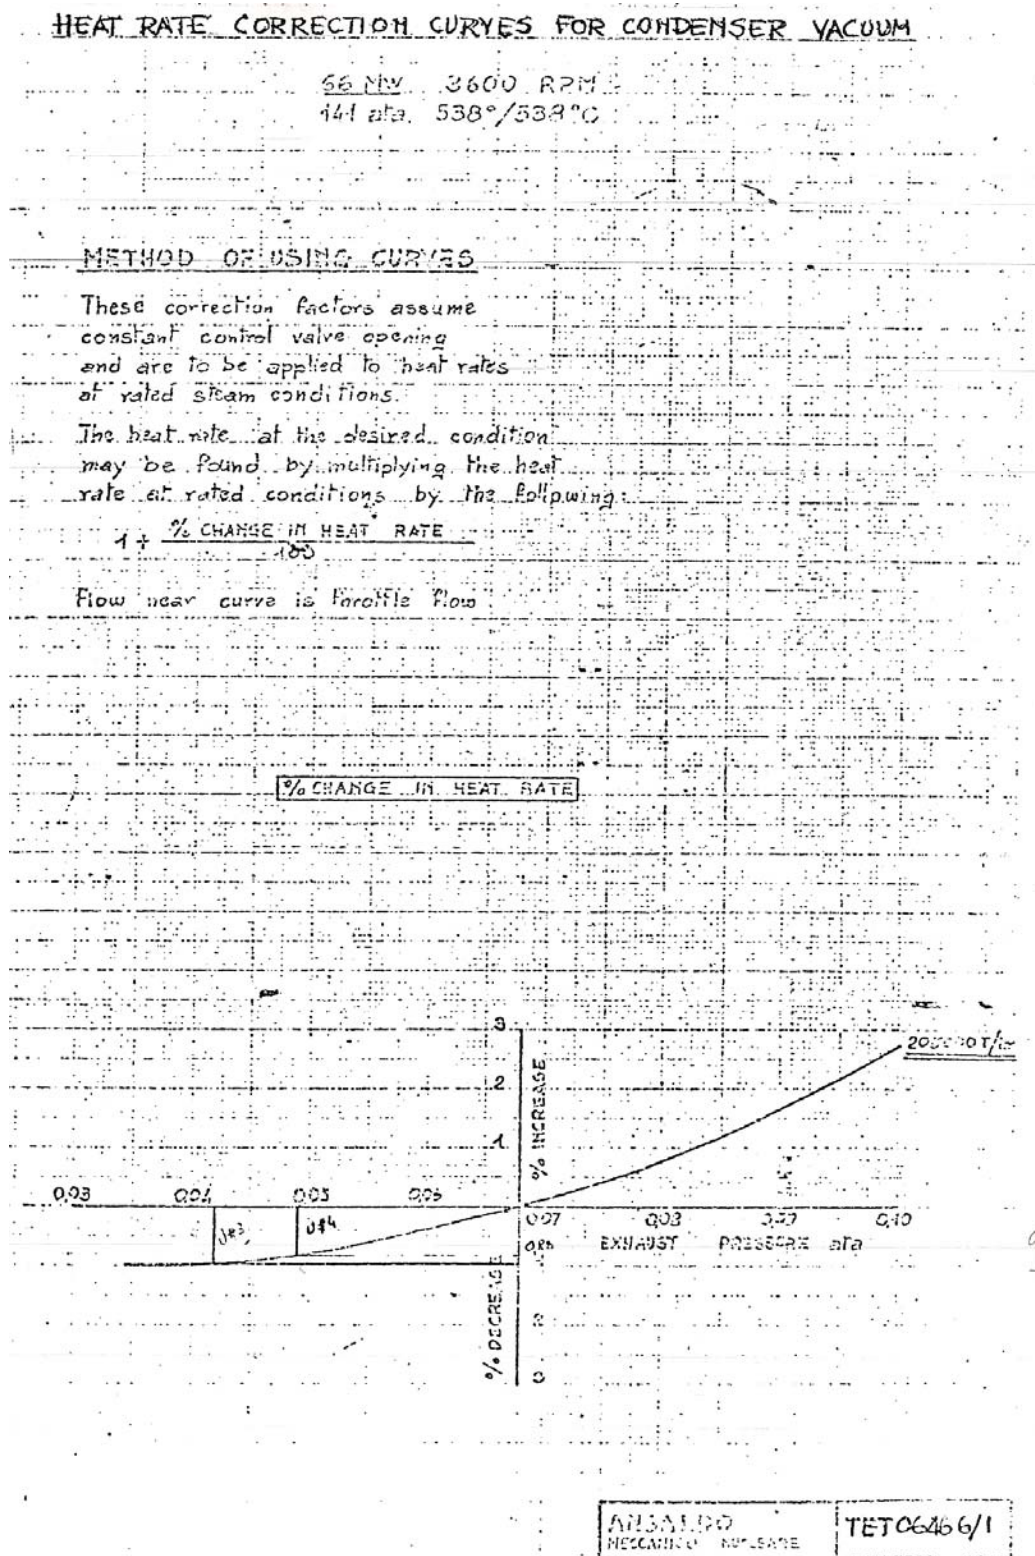 HEAT RATE CORRECTION CURVES FOR CONDENSER VACUUM
66 MW 3600 RPM
141 ata. 538°/538°C
METHOD OF USING CURVES
These correction factors assume
constant control valve opening
and are to be applied to heat rates
at rated steam conditions.
The heat rate at the desired condition
may be found by multiplying the heat
rate at rated conditions by the following:
1 + % CHANGE IN HEAT RATE
100
Flow near curve is throttle flow
% CHANGE IN HEAT RATE
3
2
1
% INCREASE
T/h
0,03 0,04 0,05 0,06
0,07 0,08 0,09 0,10
U#3
U#4
EXHAUST PRESSURE ata
% DECREASE
2
ANSALDO
MECCANICO NUCLEARE
TET06466/1